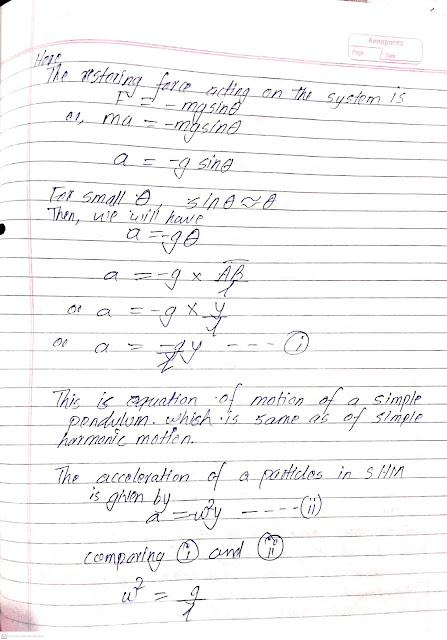 Annapurna
Page
Date
Here,
The restoring force acting on the system is
F = -mgsinθ
or, ma = -mgsinθ
a = -g sinθ
For small θ, sinθ ≈ θ
Then, we will have
a = -gθ
a = -g × AB/l
or a = -g × y/l
or a = -g/l y ---- (i)
This is equation of motion of a simple
pendulum. which is same as of simple
harmonic motion.
The acceleration of a particles in SHM
is given by
a = -ω²y ---- (ii)
comparing (i) and (ii)
ω² = g/l